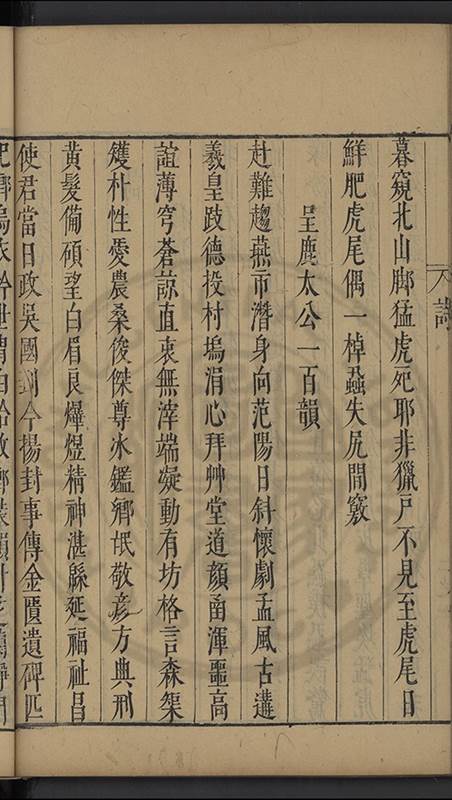 暮窺北山脚猛虎死耶非獵户不見至虎尾日
鮮肥虎尾偶一棹蝨失尻間竅
呈鹿太公一百韻
赴難趨燕市潛身向范陽日斜懷劇孟風古遘
羲皇跂德投村塢涓心拜艸堂道顔甬渾噩高
誼薄穹蒼諒直衷無滓端凝動有坊格言森榘
矱朴性愛農桑俊傑尊冰鑑鄉氓敬彦方典刑
黄髮備碩望白眉良爗煜精神湛緜延福祉昌
使君當日政吳國到今揚封事傳金匱遺碑匹